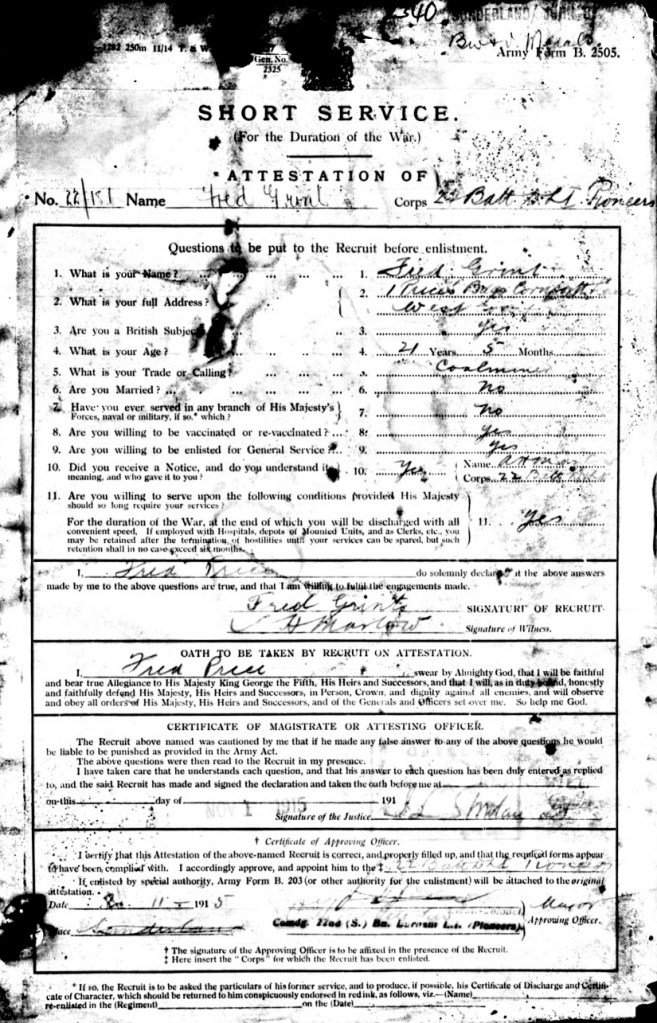 1282 250m 11/14
Gen. No.
2325
Army Form B. 2505.
SHORT SERVICE.
(For the Duration of the War.)
*ATTESTATION OF
No. 22/151 Name Fred Grint Corps 22 Batt D.L.I. Pioneers
Questions to be put to the Recruit before enlistment.
1. What is your Name? 1. Fred Grint
2. What is your full Address? 2.
3. Are you a British Subject 3. Yes
4. What is your Age? 4. 21 Years 5 Months
5. What is your Trade or Calling? 5. Coalminer
6. Are you Married? 6. No
7. Have you ever served in any branch of His Majesty's
Forces, naval or military, if so,* which? 7. No
8. Are you willing to be vaccinated or re-vaccinated? 8. Yes
9. Are you willing to be enlisted for General Service? 9. Yes
10. Did you receive a Notice, and do you understand its
meaning, and who gave it to you? 10. Yes Name
Corps 22
11. Are you willing to serve upon the following conditions provided His Majesty
should so long require your services?
For the duration of the War, at the end of which you will be discharged with all
convenient speed. If employed with Hospitals, depots of Mounted Units, and as Clerks, etc., you
may be retained after the termination of hostilities until your services can be spared, but such
retention shall in no case exceed six months. 11. Yes
I, Fred do solemnly declare that the above answers
made by me to the above questions are true, and that I am willing to fulfil the engagements made.
Fred Grint SIGNATURE OF RECRUIT
Signature of Witness.
OATH TO BE TAKEN BY RECRUIT ON ATTESTATION.
I, Fred swear by Almighty God, that I will be faithful
and bear true Allegiance to His Majesty King George the Fifth, His Heirs and Successors, and that I will, as in duty bound, honestly
and faithfully defend His Majesty, His Heirs and Successors, in Person, Crown, and dignity against all enemies, and will observe
and obey all orders of His Majesty, His Heirs and Successors, and of the Generals and Officers set over me. So help me God.
CERTIFICATE OF MAGISTRATE OR ATTESTING OFFICER.
The Recruit above named was cautioned by me that if he made any false answer to any of the above questions he would
be liable to be punished as provided in the Army Act.
The above questions were then read to the Recruit in my presence.
I have taken care that he understands each question, and that his answer to each question has been duly entered as replied
to, and the said Recruit has made and signed the declaration and taken the oath before me at
on this day of 191
NOV 1 1915
Signature of the Justice
† Certificate of Approving Officer.
I certify that this Attestation of the above-named Recruit is correct, and properly filled up, and that the required forms appear
to have been complied with. I accordingly approve, and appoint him to the‡
If enlisted by special authority, Army Form B. 203 (or other authority for the enlistment) will be attached to the original
attestation.
Date 11 1915 Major
Comdg. 22nd (S.) Bn. Durham L.I. (Pioneers) Approving Officer.
Place Sunderland
† The signature of the Approving Officer is to be affixed in the presence of the Recruit.
‡ Here insert the "Corps" for which the Recruit has been enlisted.
*If so, the Recruit is to be asked the particulars of his former service, and to produce, if possible, his Certificate of Discharge and Certifi-
cate of Character, which should be returned to him conspicuously endorsed in red ink, as follows, viz.—(Name)
re-enlisted in the (Regiment) on the (Date)